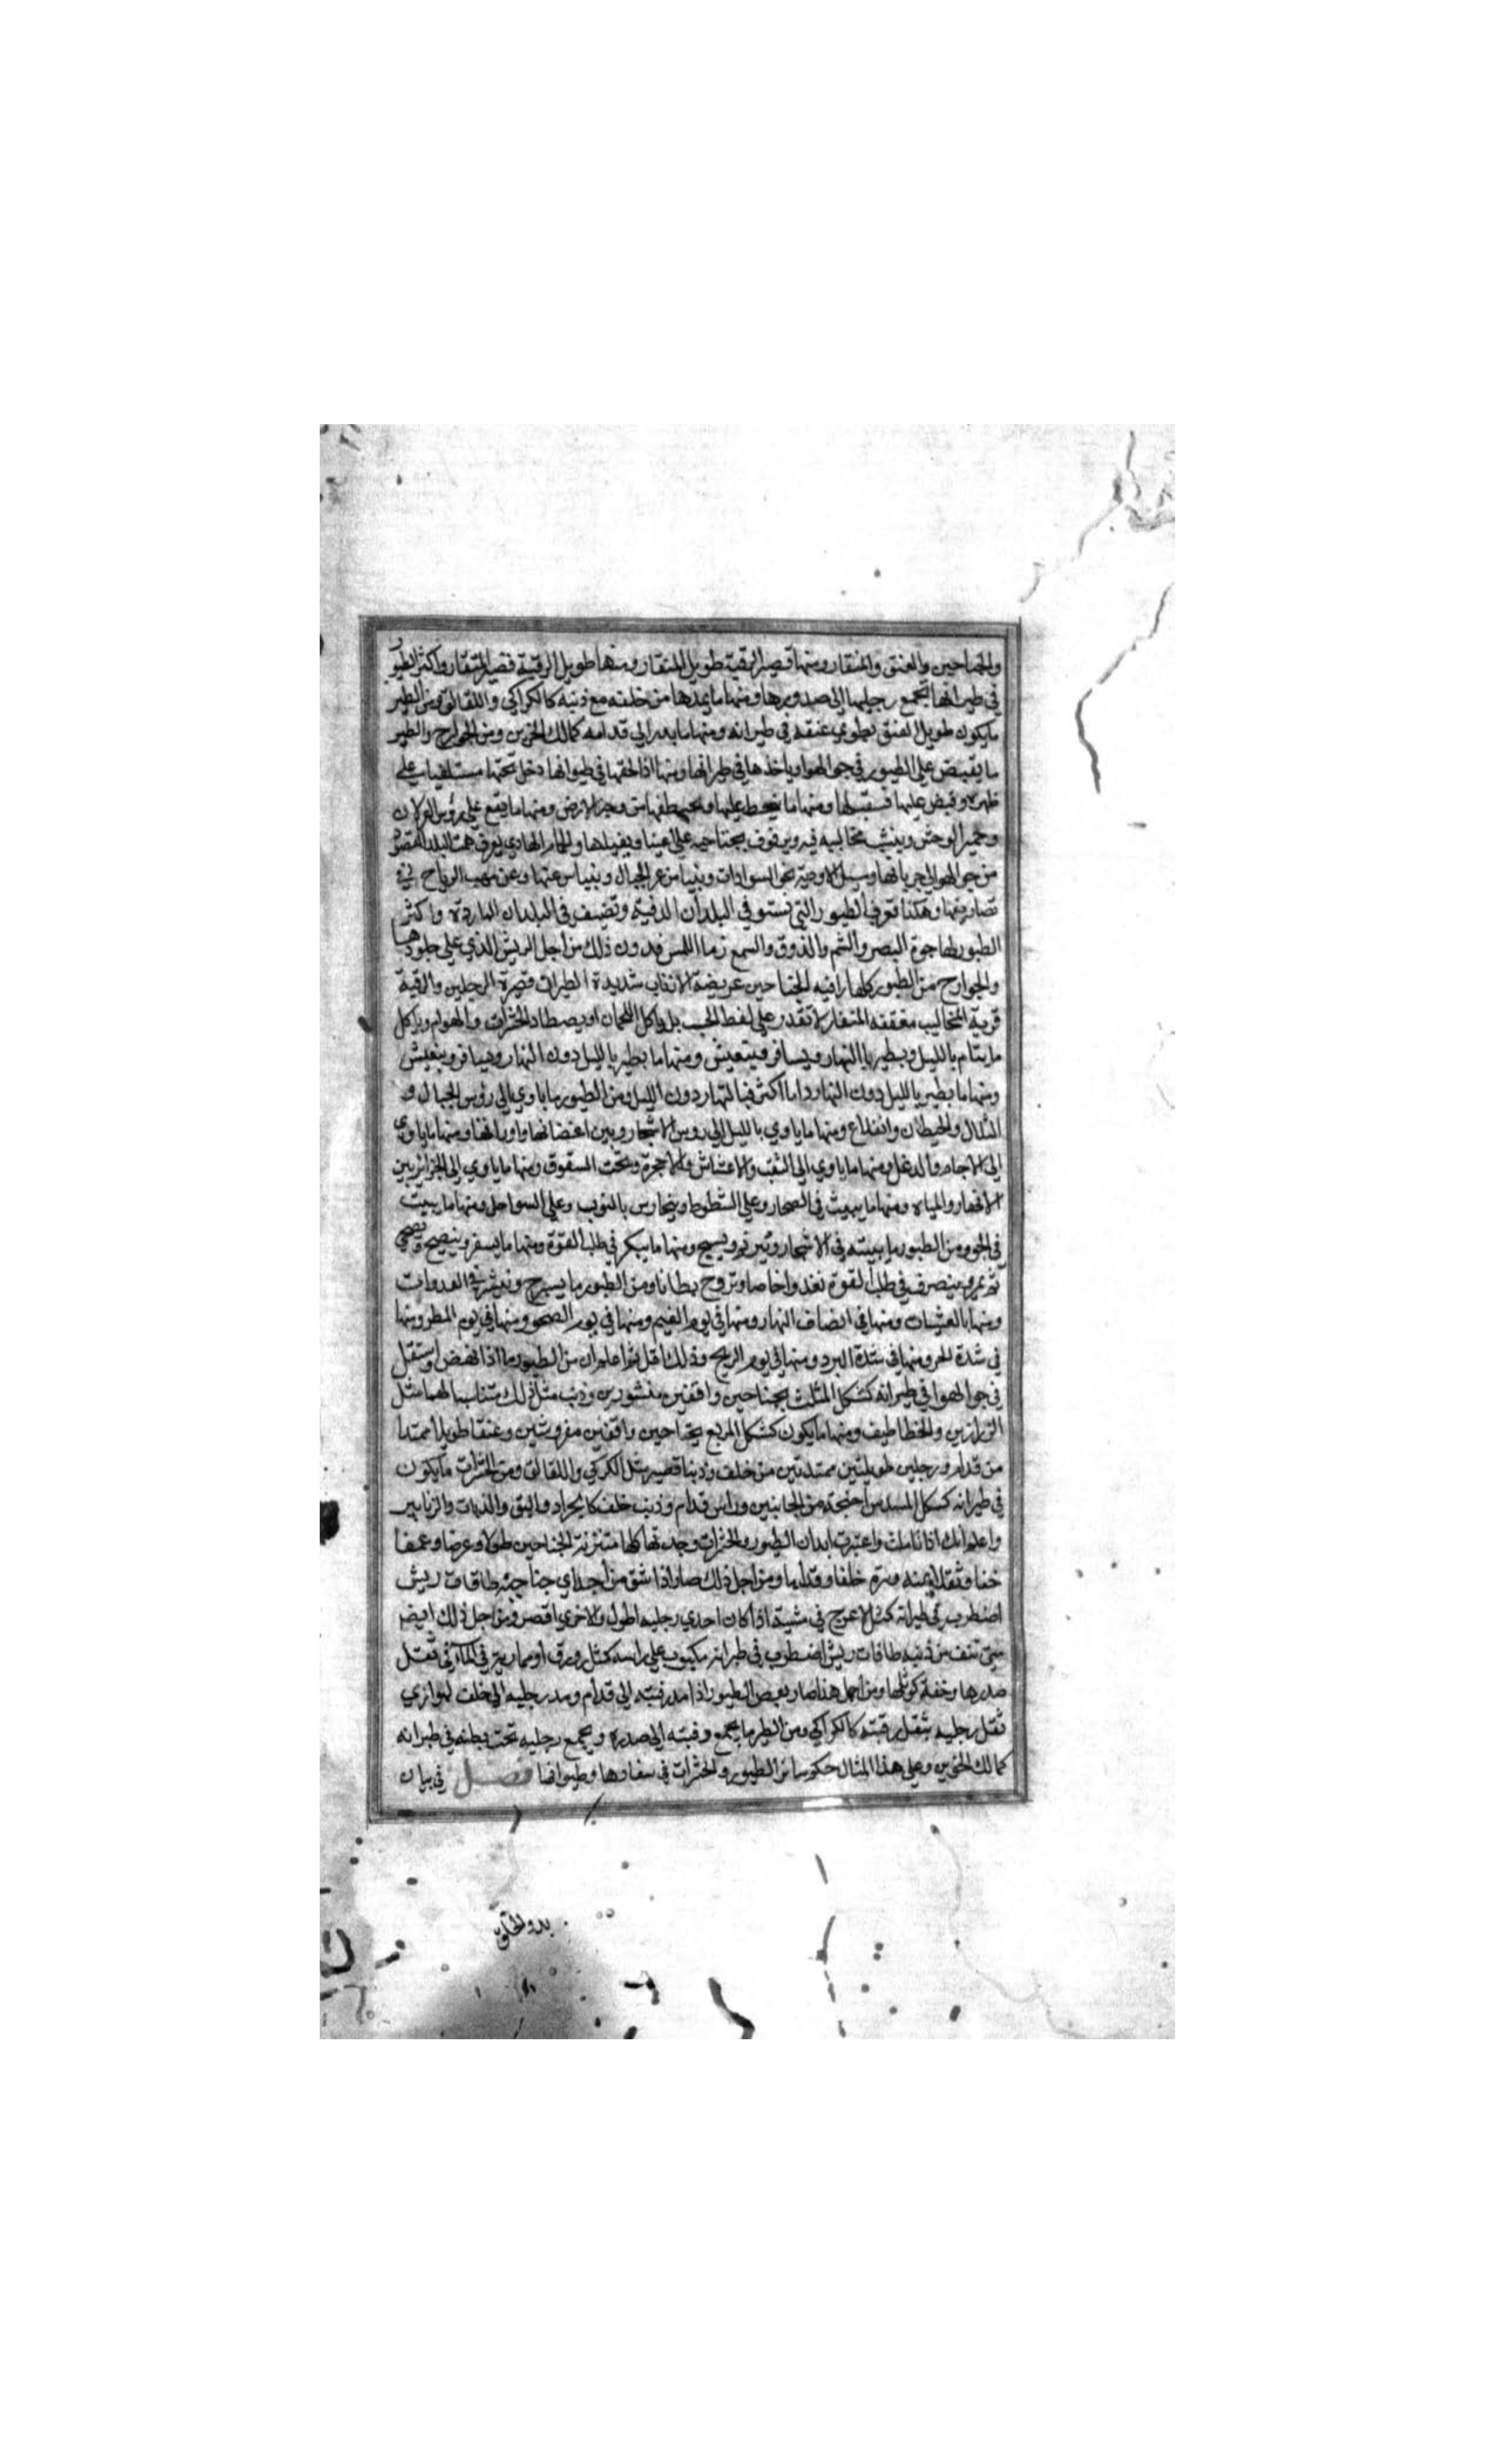 والجناحين والعنق والمنقار ومنها قصير الرقبة طويل المنقار ومنها طويل الرقبة قصير المنقار واكثر الطيور
في طيرانها تجمع رجليها الى صدورها ومنها ما يمدها من خلفه مع ذنبه كالكراكي واللقالق ومن الطير
ما يكون طويل العنق يطوي عنقه في طيرانه ومنها ما يمد الى قدامه كمالك الحزين ومن الجوارح والطير
ما يقبض على الطيور في جو الهوا وياخذها في طيرانها ومنها اذا لحقها في طيرانها دخل تحتها مستلقيا على
ظهره وقبض عليها ومنها ما ينحط عليها ويخطفها من وجه الارض ومنها ما يقع على رؤس الغزلان
وحمير الوحش وينشب مخالبيه فيه ويرفرف بجناحيه على اعينها ويقيلها والحمام الهادي يعرف سمت البلد المقصود
من جو الهوا الى جريانها ومسيل الاودية نحو السوادات ويتيامن عن الجبال ويتياسر عنها وعن مهب الرياح في
تصاريفها وهكذا تعرف الطيور التي تشتو في البلدان الدفية وتصيف في البلدان الباردة واكثر
الطيور لها جودة البصر والشم والذوق والسمع فاما اللمس فدون ذلك من اجل الريش الذي على جلودها
والجوارح من الطيور كلها وافية الجناحين عريضة الاذناب شديدة الطيران قصيرة الرجلين والرقبة
قوية المخاليب معقفة المنقار لا تقدر على لقط الحب بل ياكل اللحمان او يصطاد الحشرات والهوام وياكل
ما ينام بالليل ويطير بالنهار ويسافر ويتعيش ومنها ما يطير بالليل دون النهار ويسافر ويتعيش
ومنها ما يطير بالليل دون النهار واما اكثر فبالنهار دون الليل ومن الطيور ما ياوي الى رؤس الجبال و
التلال والحيطان والقلاع ومنها ما ياوي بالليل الى روس الاشجار وبين اغصانها واوراقها ومنها ما ياوي
الى الاجام والدغل ومنها ما ياوي الى الثقب والاعشاش والاحجرة وتحت السقوف ومنها ما ياوي الى الجزائر بين
الانهار والمياه ومنها ما يبيت في الصحار وعلى الشطوط ويتحارس بالنوب وعلى السواحل ومنها ما يبيت
في الجو ومن الطيور ما يبيته في الاشجار ويترنم ويسبح ومنها ما يبكر في طلب القوة ومنها ما يسفر ويصيح ويضحي
ثم يمر وينصرف في طلب القوة تغدوا خماصا وتروح بطانا ومن الطيور ما يسرح وينتشر في الغدوات
ومنها بالعشيات ومنها في انصاف النهار ومنها في يوم الغيم ومنها في يوم الصحو ومنها في يوم المطر ومنها
في شدة الحر ومنها في شدة البرد ومنها في يوم الريح وذلك اقل ثم اعلم ان من الطيور ما اذا نهض واستقل
في جو الهوا في طيرانه كشكل المثلث بجناحين وافقين منشورين وذنب مثل ذلك متناسبا لهما مثل
الزرازير والخطاطيف ومنها ما يكون كشكل المربع بجناحين وافقين مفروشين وعنقا طويلا ممتدا
من قدام ورجلين طويلتين ممتدتين من خلف وذنبا قصير مثل الكركي واللقالق ومن الحشرات ما يكون
في طيرانه كشكل المسدس اجنحة من الجانبين وراس قدام وذنب خلف كالجراد والبق والذبات والزنابير
واعلم انك اذا تاملت واعتبرت ابدان الطيور والحشرات وجدتها كلها متزنة الجناحين طولا وعرضا وعمقا
خفا وثقلا يمنه ويسره خلفا وقداما ومن اجل ذلك صار اذا نتف من احدي جناحيه طاقات ريش
اضطرب في طيرانه كمثل الاعرج في مشيته اذا كان احدي رجليه اطول والاخرى اقصر ومن اجل ذلك ايضا
متى نتف من ذنبه طاقات ريش اضطرب في طيرانه مكبوب على راسه كمثل زورق او سمارية في الماء في ثقل
صدرها وخفة كوثلها ومن اجل هذا صار بعض الطيور اذا مد رقبته الى قدام ومد رجليه الى خلف ليوازي
ثقل رجليه بثقل رقبته كالكراكي ومن الطير ما يجمع رقبته الى صدره ويجمع رجليه تحت بطنه في طيرانه
كمالك الحزين وعلى هذا المثال حكم سائر الطيور والحشرات في سفارها وطيرانها فصل في بيان
بدو الخلق